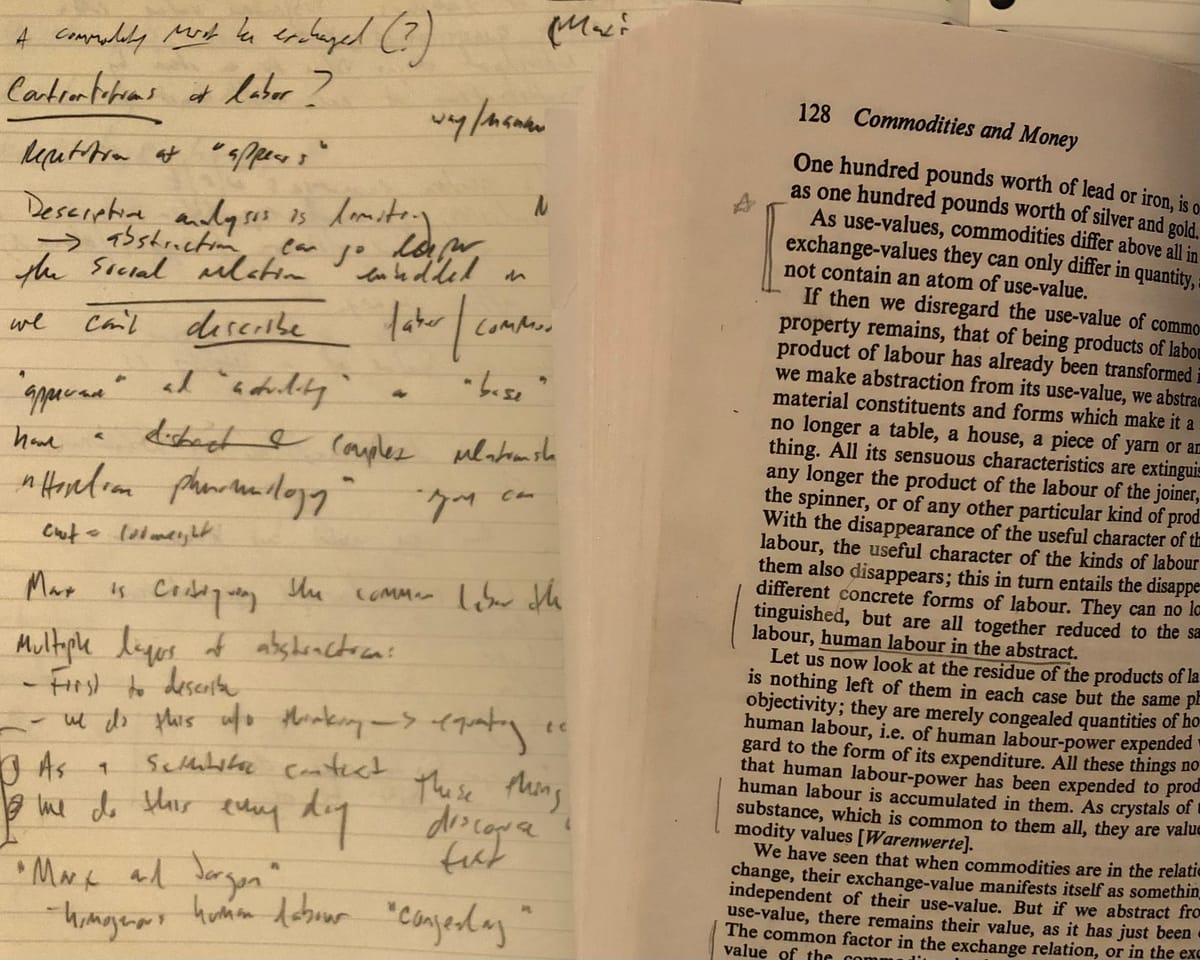 A commodity must be exchanged (?)
(Marx's
Contortions of labor?
way/manner
Repetition of "appears"
Descriptive analysis is limiting
→ abstraction can go
the social relation embedded in
we can't describe labor/commo
"base"
have a complex relationsh
you can
cwt =
Marx is critiquing the common labor th
Multiple layers of abstraction:
- First to describe
- we do this w/o thinking → equating
As a context
we do this every day
these things
"Marx and Jargon"
- homogenous human labour "congealing"
128 Commodities and Money
One hundred pounds worth of lead or iron, is o
as one hundred pounds worth of silver and gold.
As use-values, commodities differ above all in
exchange-values they can only differ in quantity,
not contain an atom of use-value.
If then we disregard the use-value of commo
property remains, that of being products of labo
product of labour has already been transformed i
we make abstraction from its use-value, we abstrac
material constituents and forms which make it a
no longer a table, a house, a piece of yarn or an
thing. All its sensuous characteristics are extinguis
any longer the product of the labour of the joiner,
the spinner, or of any other particular kind of prod
With the disappearance of the useful character of th
labour, the useful character of the kinds of labour
them also disappears; this in turn entails the disappe
different concrete forms of labour. They can no lo
tinguished, but are all together reduced to the sa
labour, human labour in the abstract.
Let us now look at the residue of the products of la
is nothing left of them in each case but the same ph
objectivity; they are merely congealed quantities of ho
human labour, i.e. of human labour-power expended
gard to the form of its expenditure. All these things no
that human labour-power has been expended to prod
human labour is accumulated in them. As crystals of
substance, which is common to them all, they are value
modity values [Warenwerte].
We have seen that when commodities are in the relati
change, their exchange-value manifests itself as somethin
independent of their use-value. But if we abstract fro
use-value, there remains their value, as it has just been
The common factor in the exchange relation, or in the exc
value of the